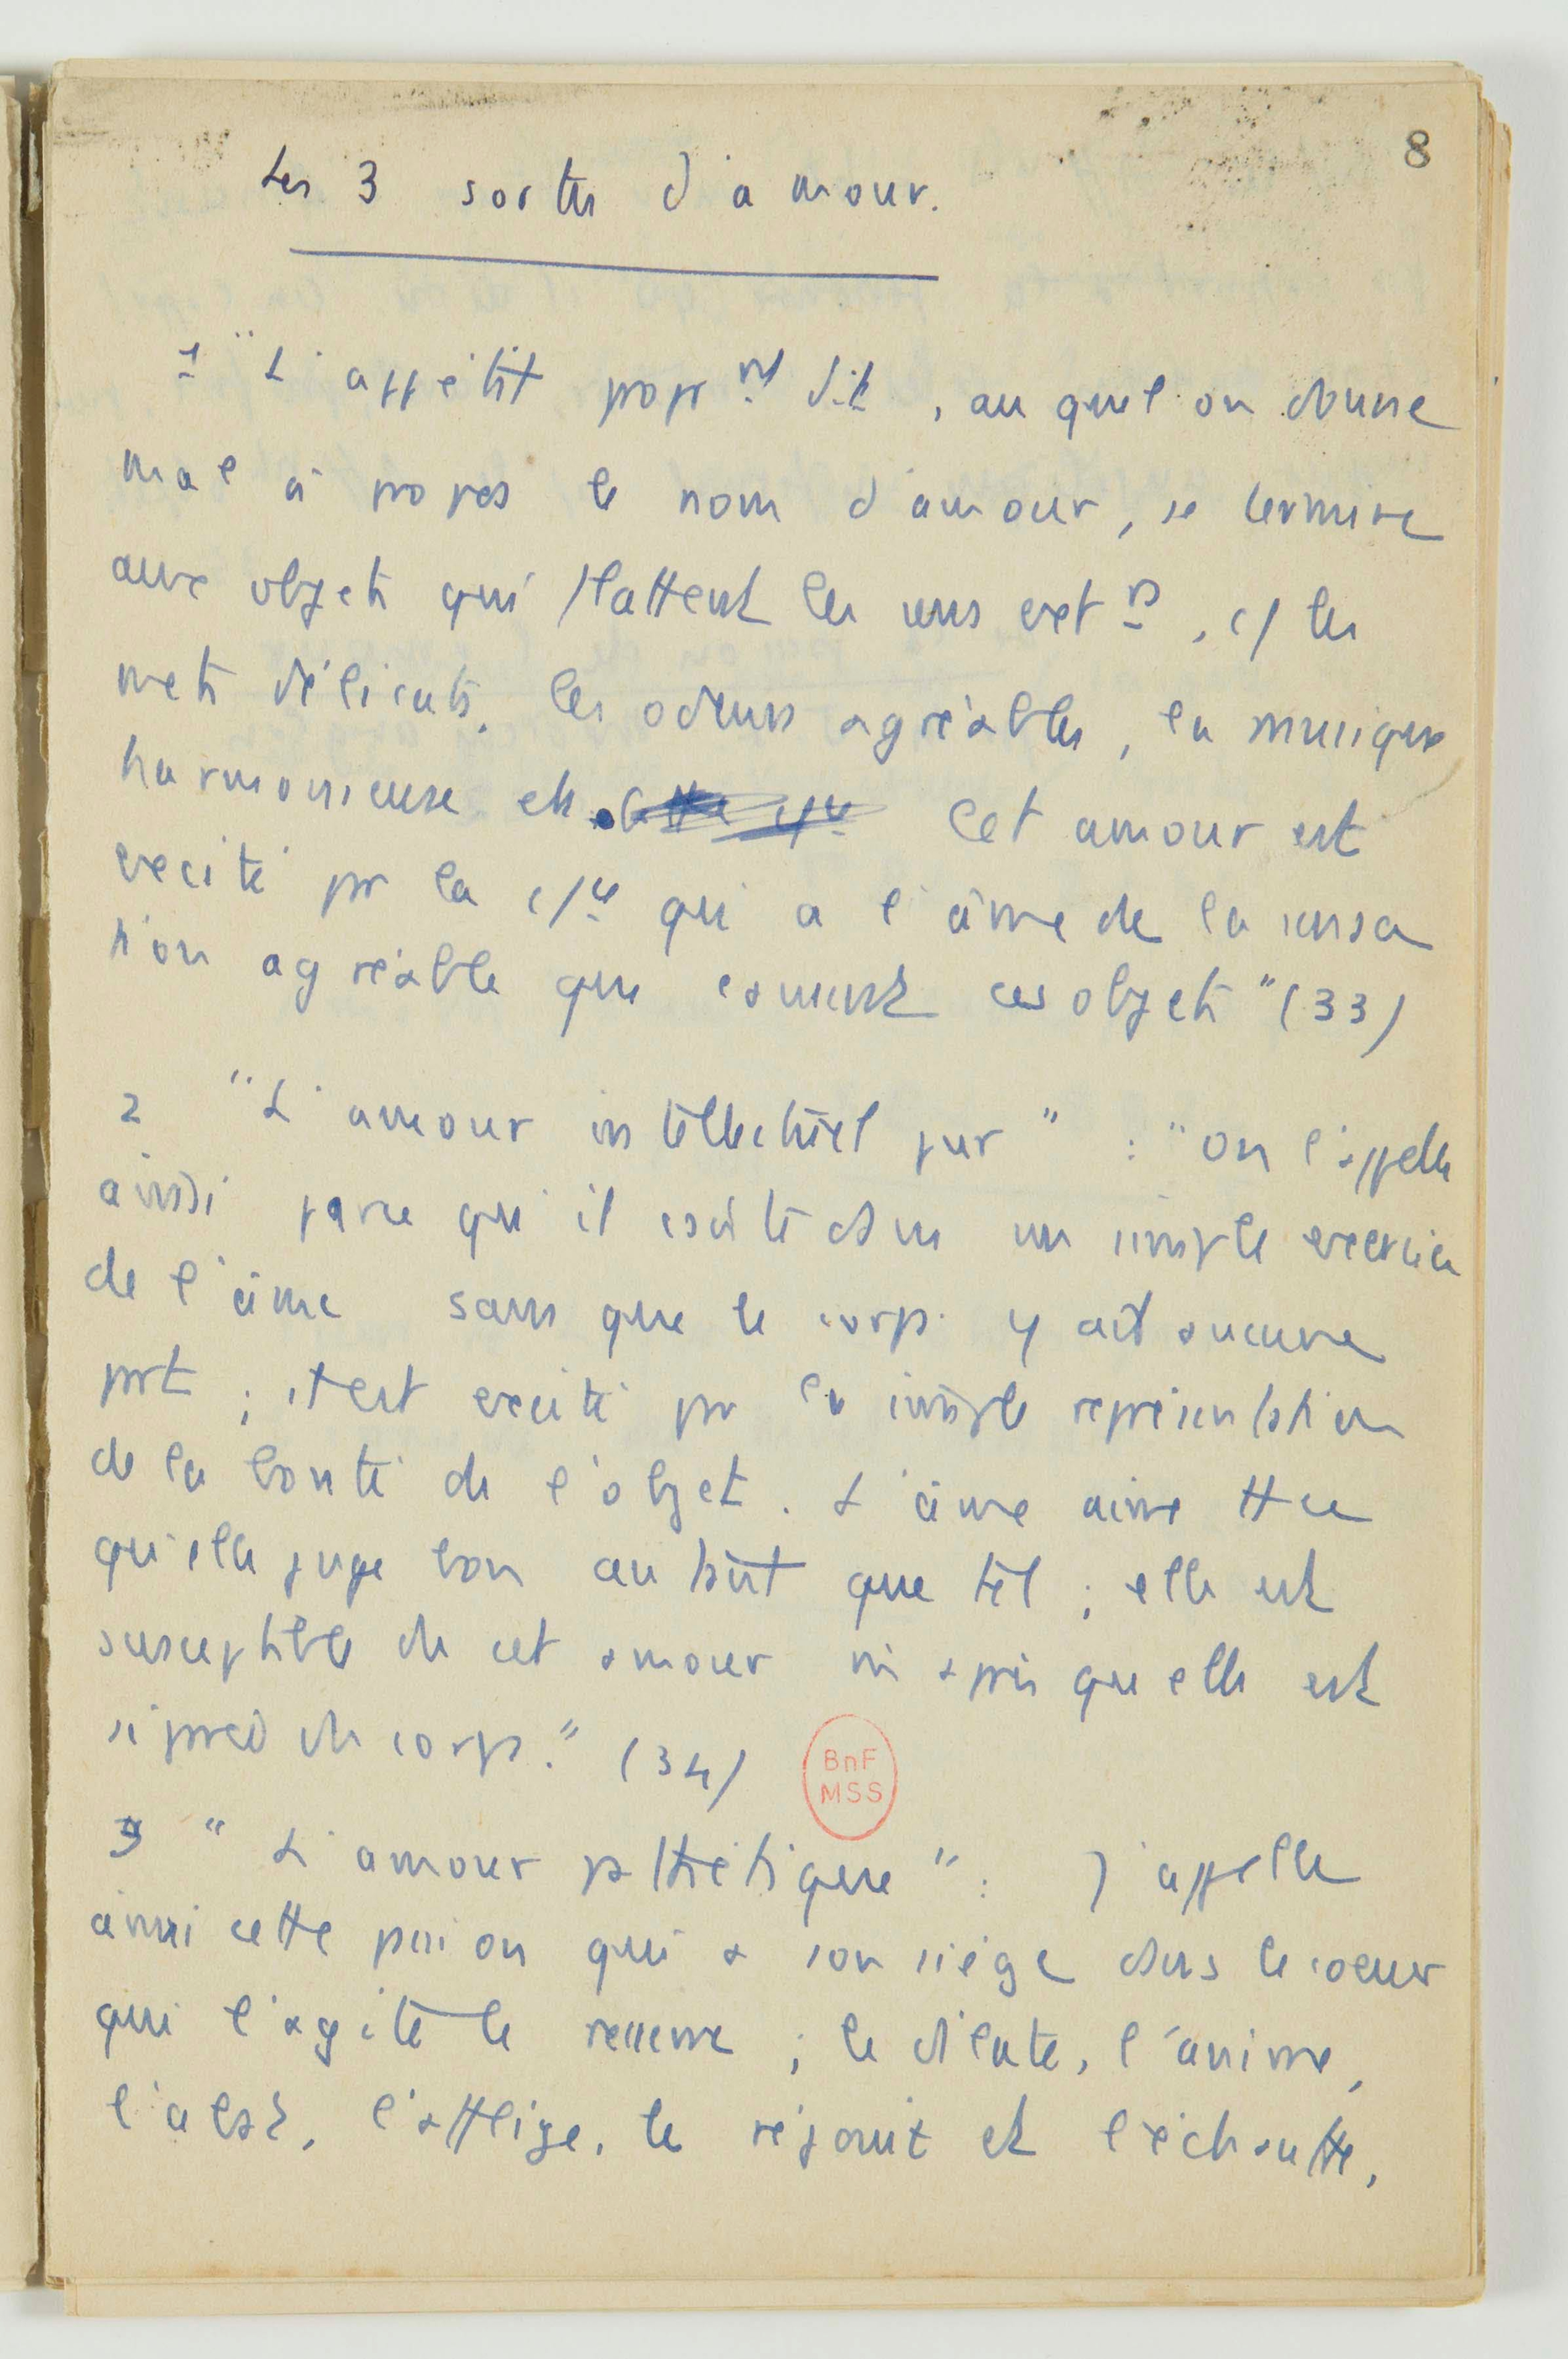 8
Les 3 sortes d'amour.
1 "L'appétit propr nt dit, auquel on donne
mal à propos le nom d'amour, se termine
aux objets qui flattent les sens ext rs, c/ les
mets délicats, les odeurs agréables, la musique
harmonieuse etc. Cet amour est
excité par la c/ce qui a l'âme de la sensa
tion agréable que causent ces objets" (33)
2 "L'amour intellectuel pur" : "on l'appelle
ainsi parce qu'il excite dans un simple exercice
de l'âme sans que le corps y ait aucune
part ; il est excité par la simple représentation
de la bonté de l'objet. L'âme aime tt ce
qu'elle juge bon autant que tel ; elle est
susceptible de cet amour même après qu'elle est
séparée du corps." (34)
3 "L'amour pathétique" : J'appelle
ainsi cette passion qui a son siège dans le coeur
qui l'agite le resserre ; le dilate, l'anime,
l'abat, l'afflige, le réjouit et l'échauffe,
BnF
MSS